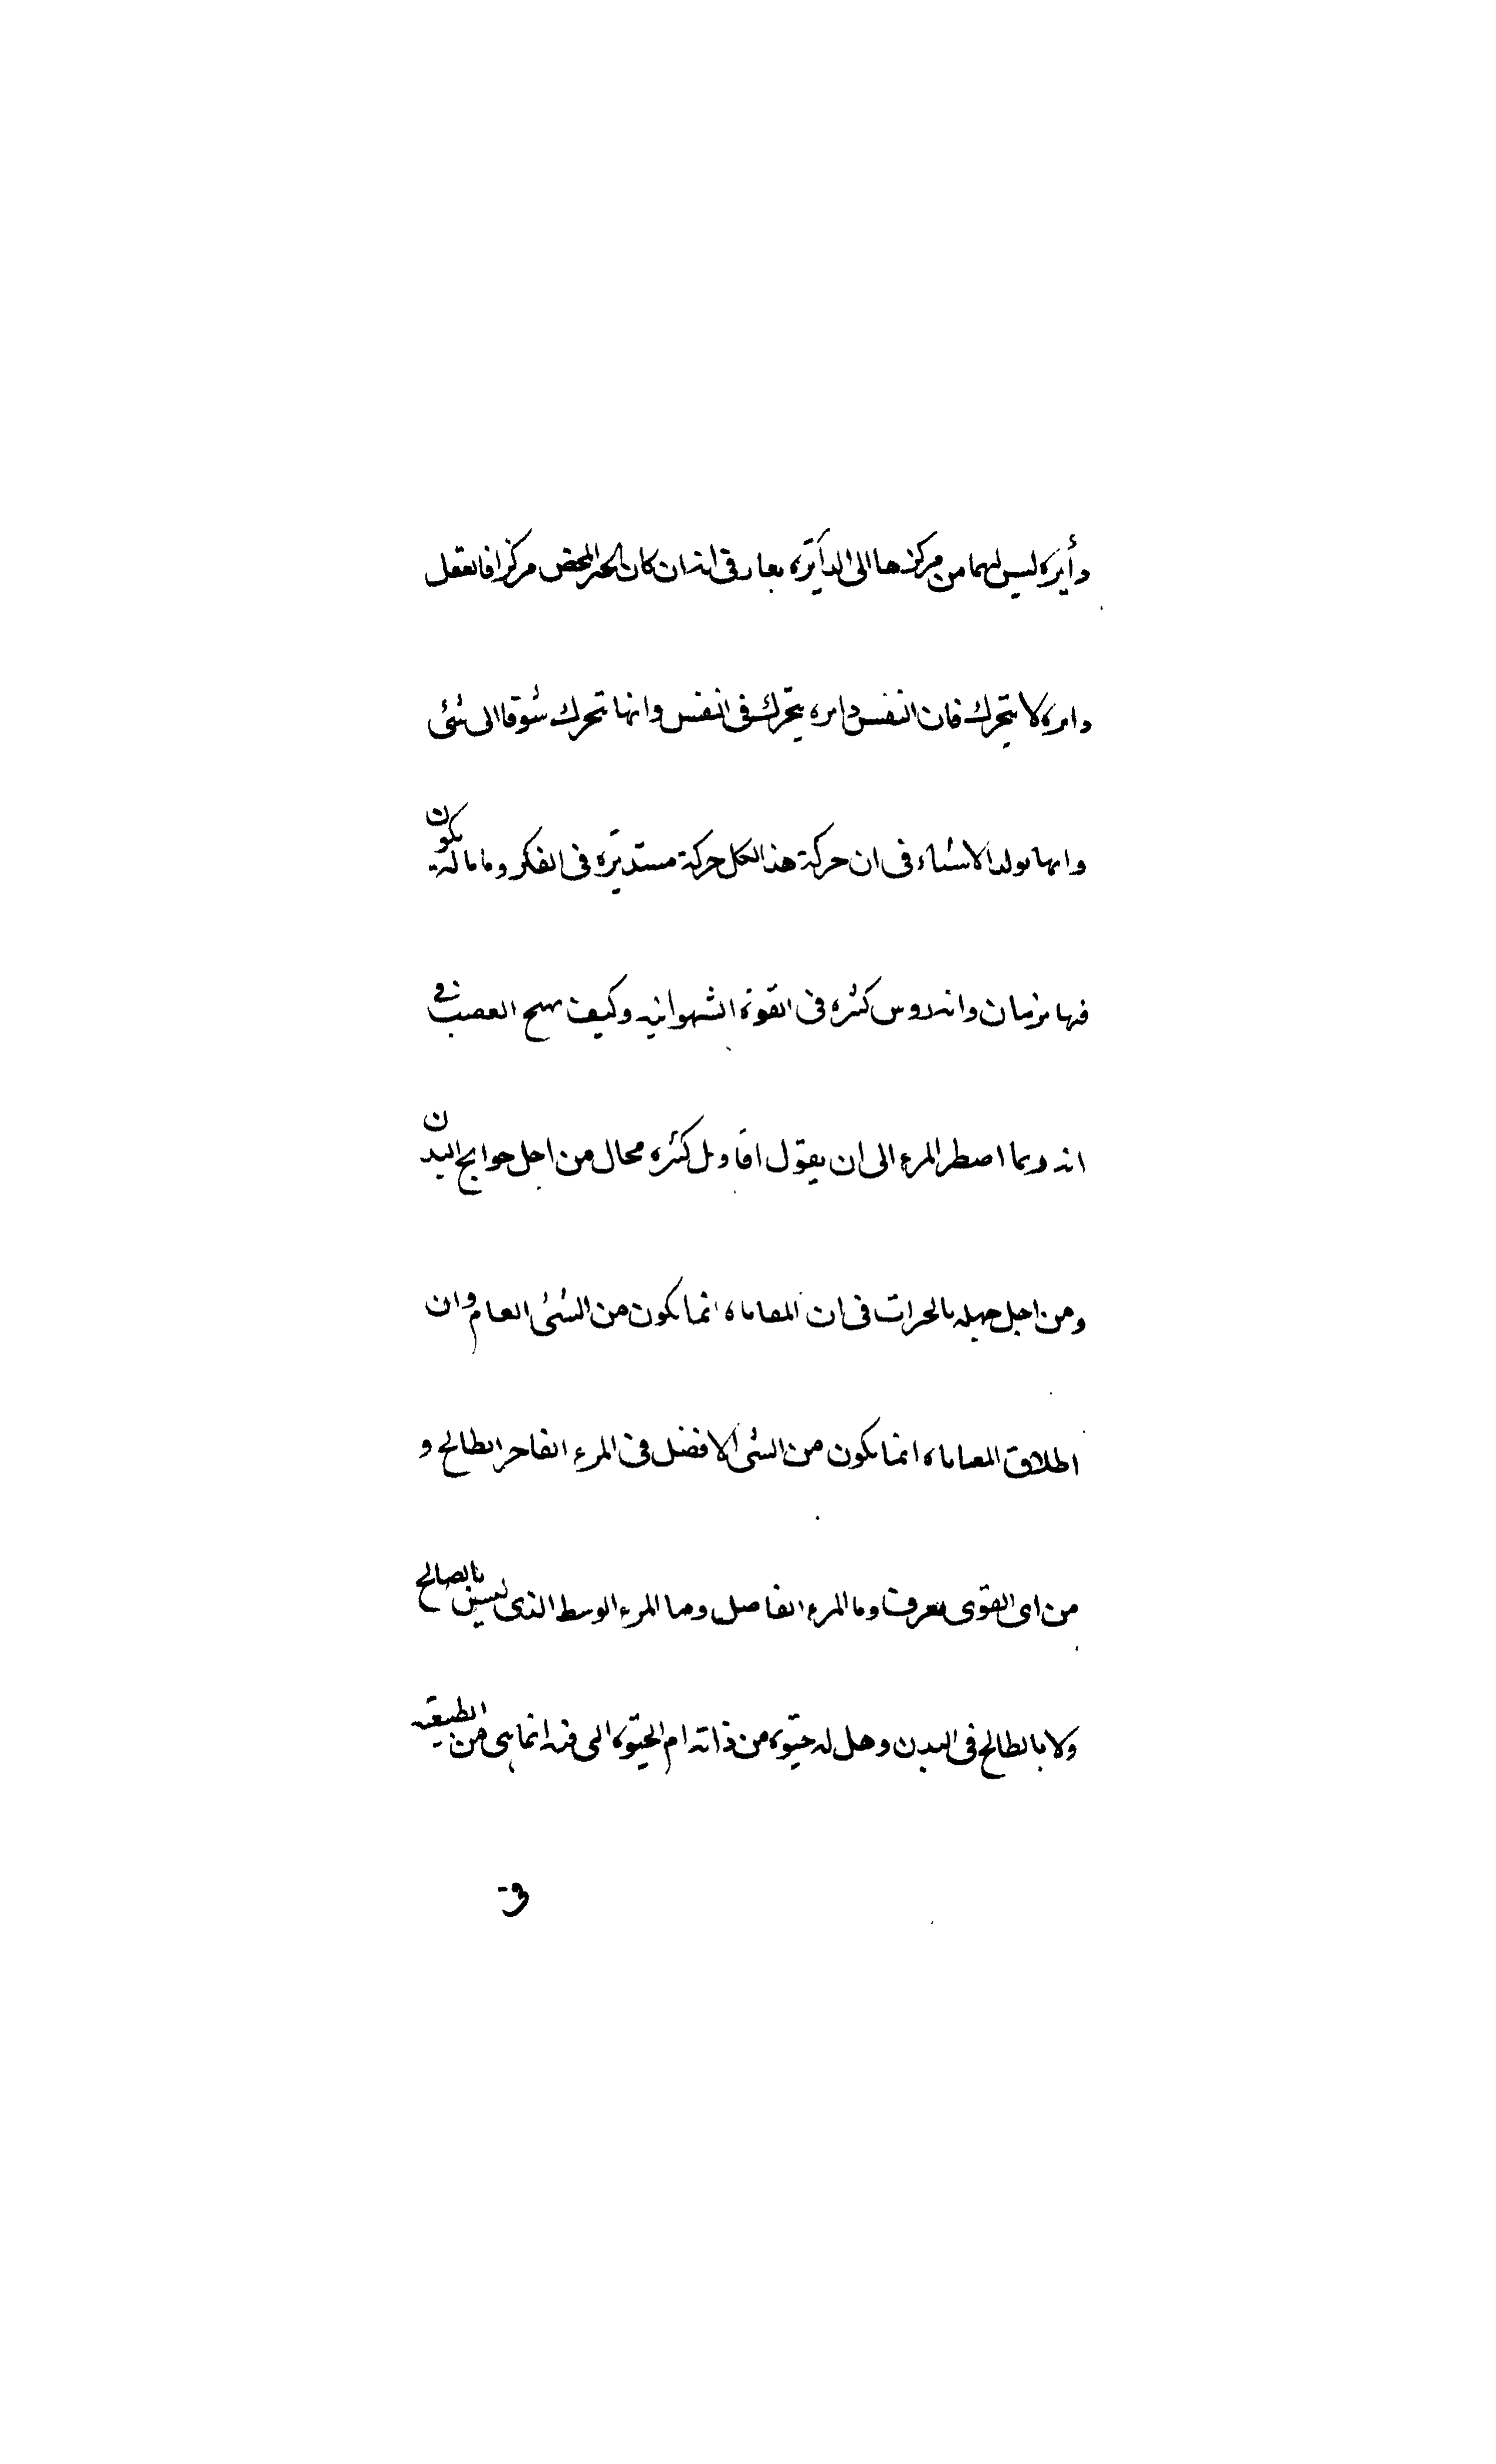 دأيره ليس لهما من مركزها الى الدآيره بعاد في انه ان كان الخير المحض مركزا فالعقل
دايره لا يتحرك فان النفس دايره يتحرك في النفس وانها تحرك شوقا الى شئ
وانها تولد الاشياء في ان حركة هذا الكل حركة مستديره في الفكر وما باله يكون
فيها بزمان وانه روس كثيره في القوة الشهوانيه وكيف يهيج الغضب في
انه ربما اضطر المرء الى ان يقول اقاويل كثيره محال من اجل حوايج البدن
ومن اجل جهله بالخيرات في ان المعاياه انما يكون من الشئ العام وان
اطلاق المعاياه انما يكون من الشئ الافضل في المرء الفاجر الطالح و
من اى القوى يعرف وما المرء الفاضل وما المرء الوسط الذى ليس بالصالح
ولا بالطالح في البدن وهل له حيوة من ذاته ام الحيوة التى فيه انما هى من الطبيعة